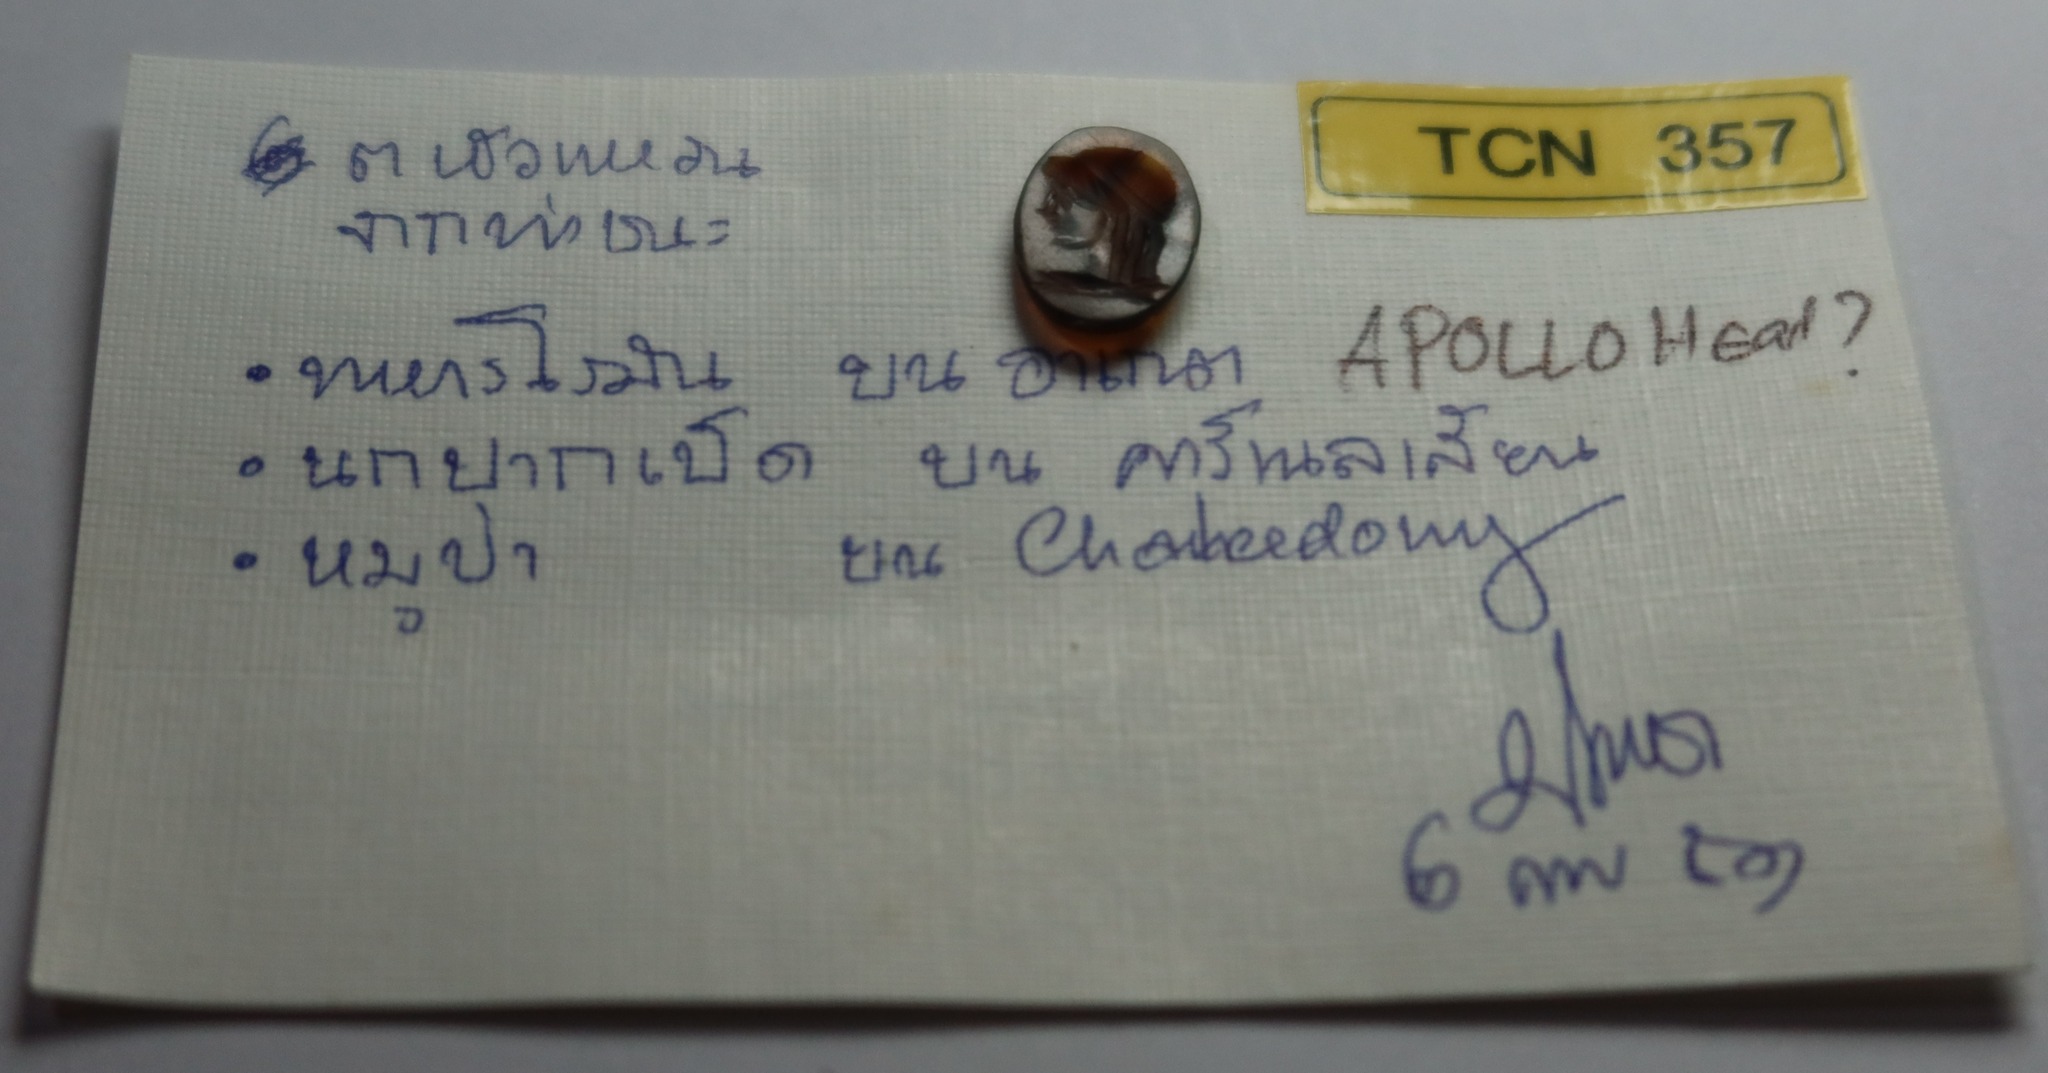 TCN 357
หัวแหวน
จากท่าชนะ
• ทหารโรมัน บน อาเกต APOLLO Head?
• นกปากเป็ด บน คาร์เนลเลี้ยน
• หมูป่า บน Chalcedony